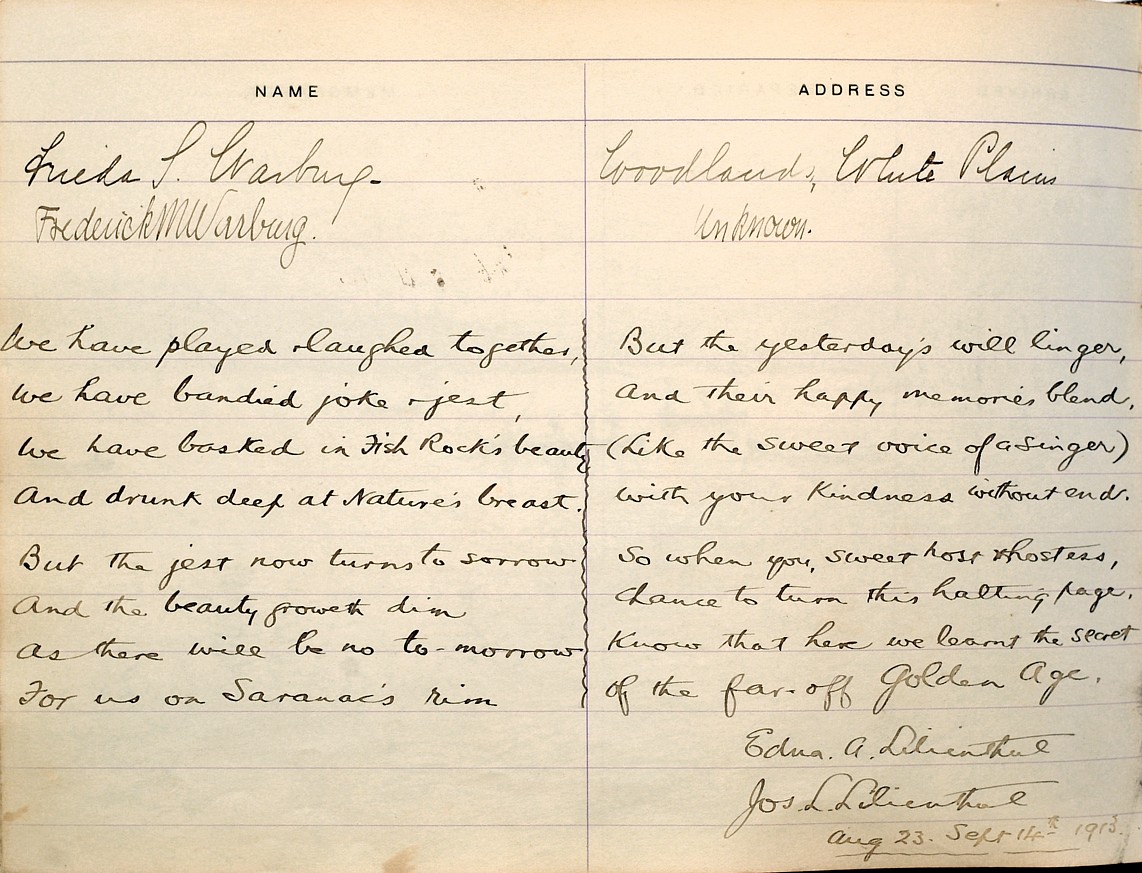 NAME
ADDRESS
Frieda S. Warburg
Woodlands, White Plains
Frederick M Warburg.
Unknown.
We have played & laughed together,
We have bandied joke & jest,
We have basked in Fish Rock's beauty
And drunk deep at Nature's breast.
But the jest now turns to sorrow
And the beauty groweth dim
As there will be no to-morrow
For us on Saranac's rim
But the yesterday's will linger,
And their happy memories blend,
(Like the sweet voice of a singer)
With your kindness without end.
So when you, sweet host & hostess,
Chance to turn this halting page,
Know that here we learnt the secret
of the far-off Golden Age.
Edna. A. Lilienthal
Jos. L. Lilienthal
Aug 23. Sept 14th 1913.